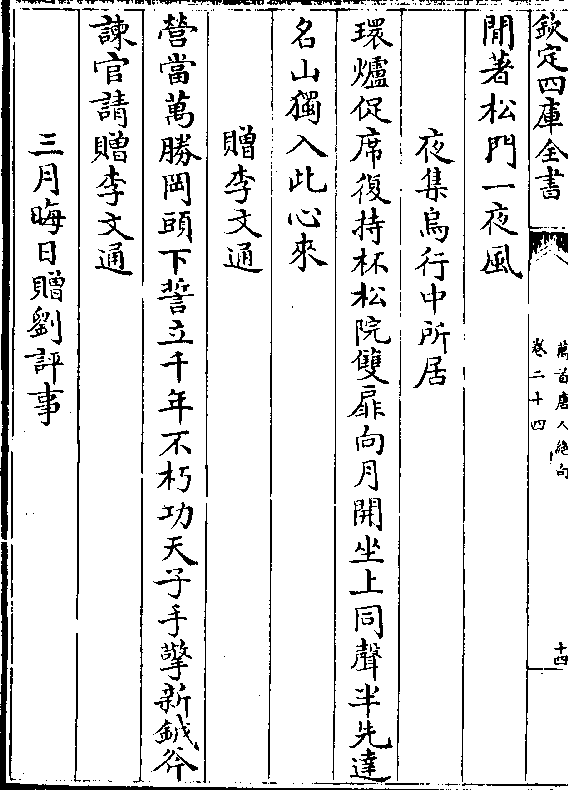 欽定四庫全書
萬首唐人絕句
卷二十四
十四
閒著松門一夜風
夜集烏行中所居
環爐促席復持杯松院雙扉向月開坐上同聲半先達
名山獨入此心來
贈李文通
營當萬勝岡頭下誓立千年不朽功天子手擎新鉞斧
諫官請贈李文通
三月晦日贈劉評事